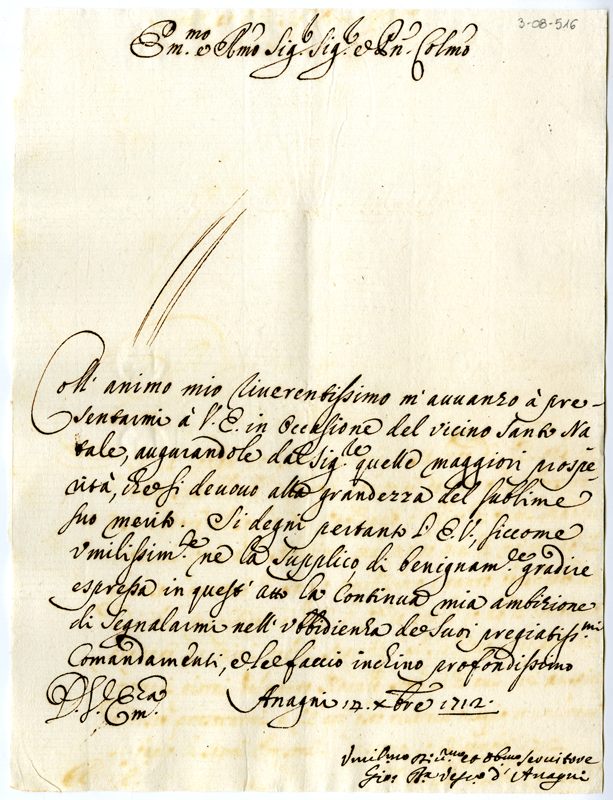 3-08-516
Em.mo e Rmo Sig.r Sig.r e Pñ Colmo
Coll' animo mio riverentissimo m' avvanzo à pre-
sentarmi à V. E. in occasione del vicino Santo Na
tale, augurandole dal Sig.re quelle maggiori prospe
rità, che si devono alla grandezza del sublime
suo merito. Si degni pertanto l' E. V., siccome
vmilissim.te ne la supplico di benignam.te gradire
espressa in quest' atto la continua mia ambizione
di segnalarmi nell' vbbidienza de suoi pregiatiss.mi
Comandamenti, e le faccio inchino profondissimo
D. V. Em.za Anagni 14. Xbre 1712.
Vmilmo et obmo servitore
Gio: Bta Vesc.o d' Anagni